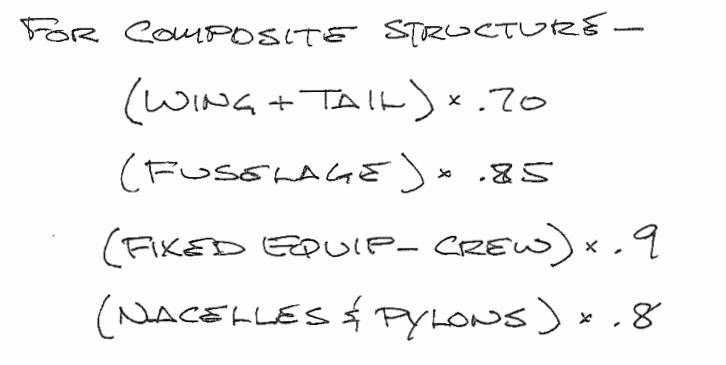 FOR COMPOSITE STRUCTURE —
(WING + TAIL) × .70
(FUSELAGE) × .85
(FIXED EQUIP – CREW) × .9
(NACELLES & PYLONS) × .8